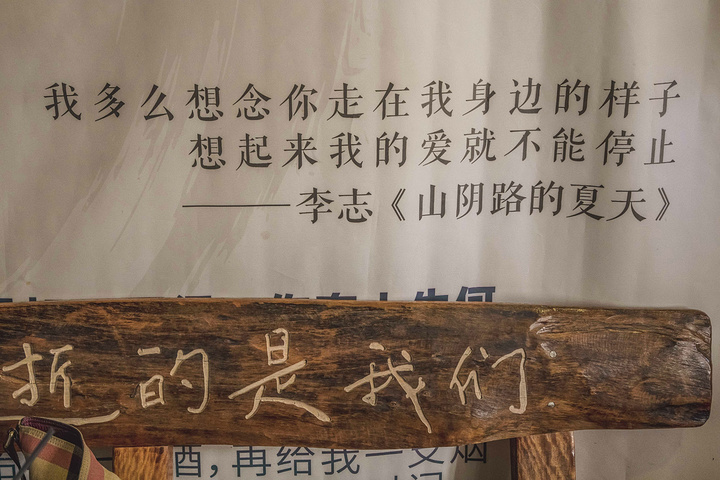 我多么想念你走在我身边的样子
想起来我的爱就不能停止
——李志《山阴路的夏天》
折的是我们
酒，再给我一支烟